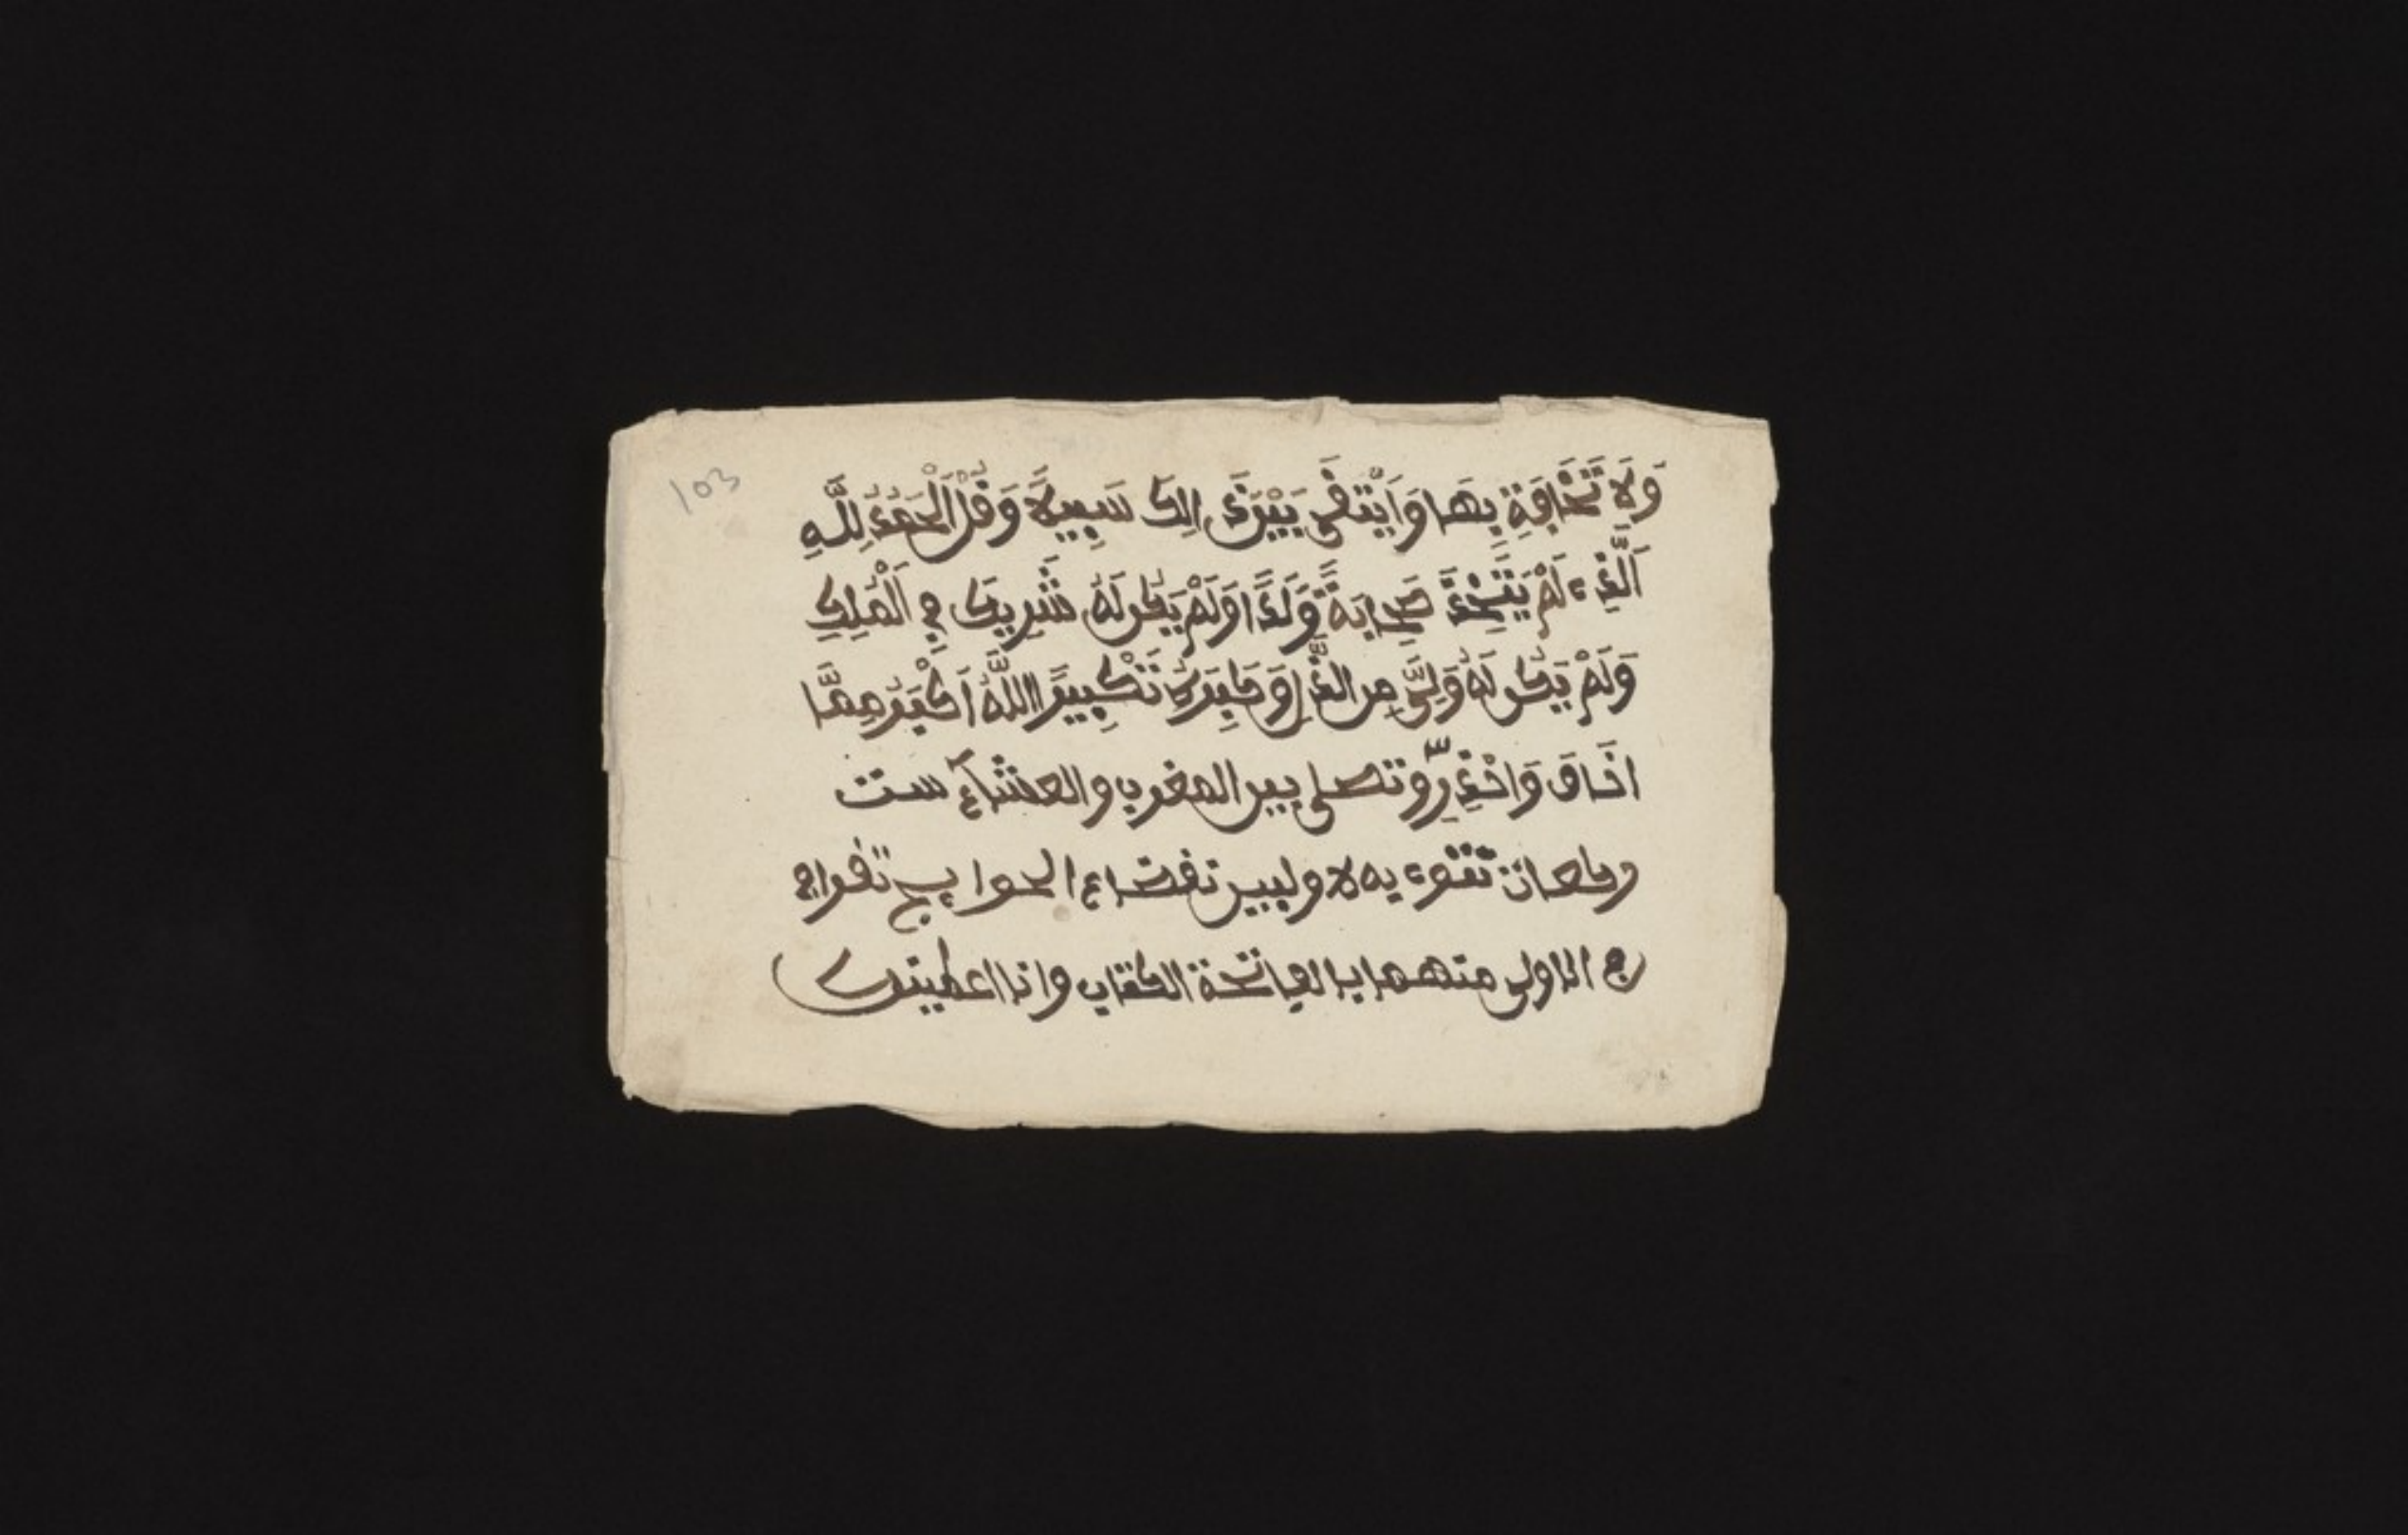 103
وَلَا تَخَافِتِ بِهَا وَاَبْتَغِى بَيْنَ ذَ الِكَ سَبِيلًا وَقُلْ اَلْحَمْدُ لِلَّهِ
اَلَّذِى لَمْ يَتَّخِذَ صَحِابَةً وَلَدًا وَلَمْ يَكُن لَهُ شَرِيكَ فِى الْمُلِكِ
وَلَمْ يَكُن لَهُ وَلِىَّ مِن الذُّلِ وَكَبِرَهُ تَكْبِيرًا اللَّهُ اَكْبَرُ مِمَّا
اخَافَ وَاحْذِرُ وتصلى بين المغرب والعشآء ست
ركعات تنوى به لاوليين قضاء الحوايج تقرا
فى الاولى منهما بالفاتحة الكتاب وانا اعطينك